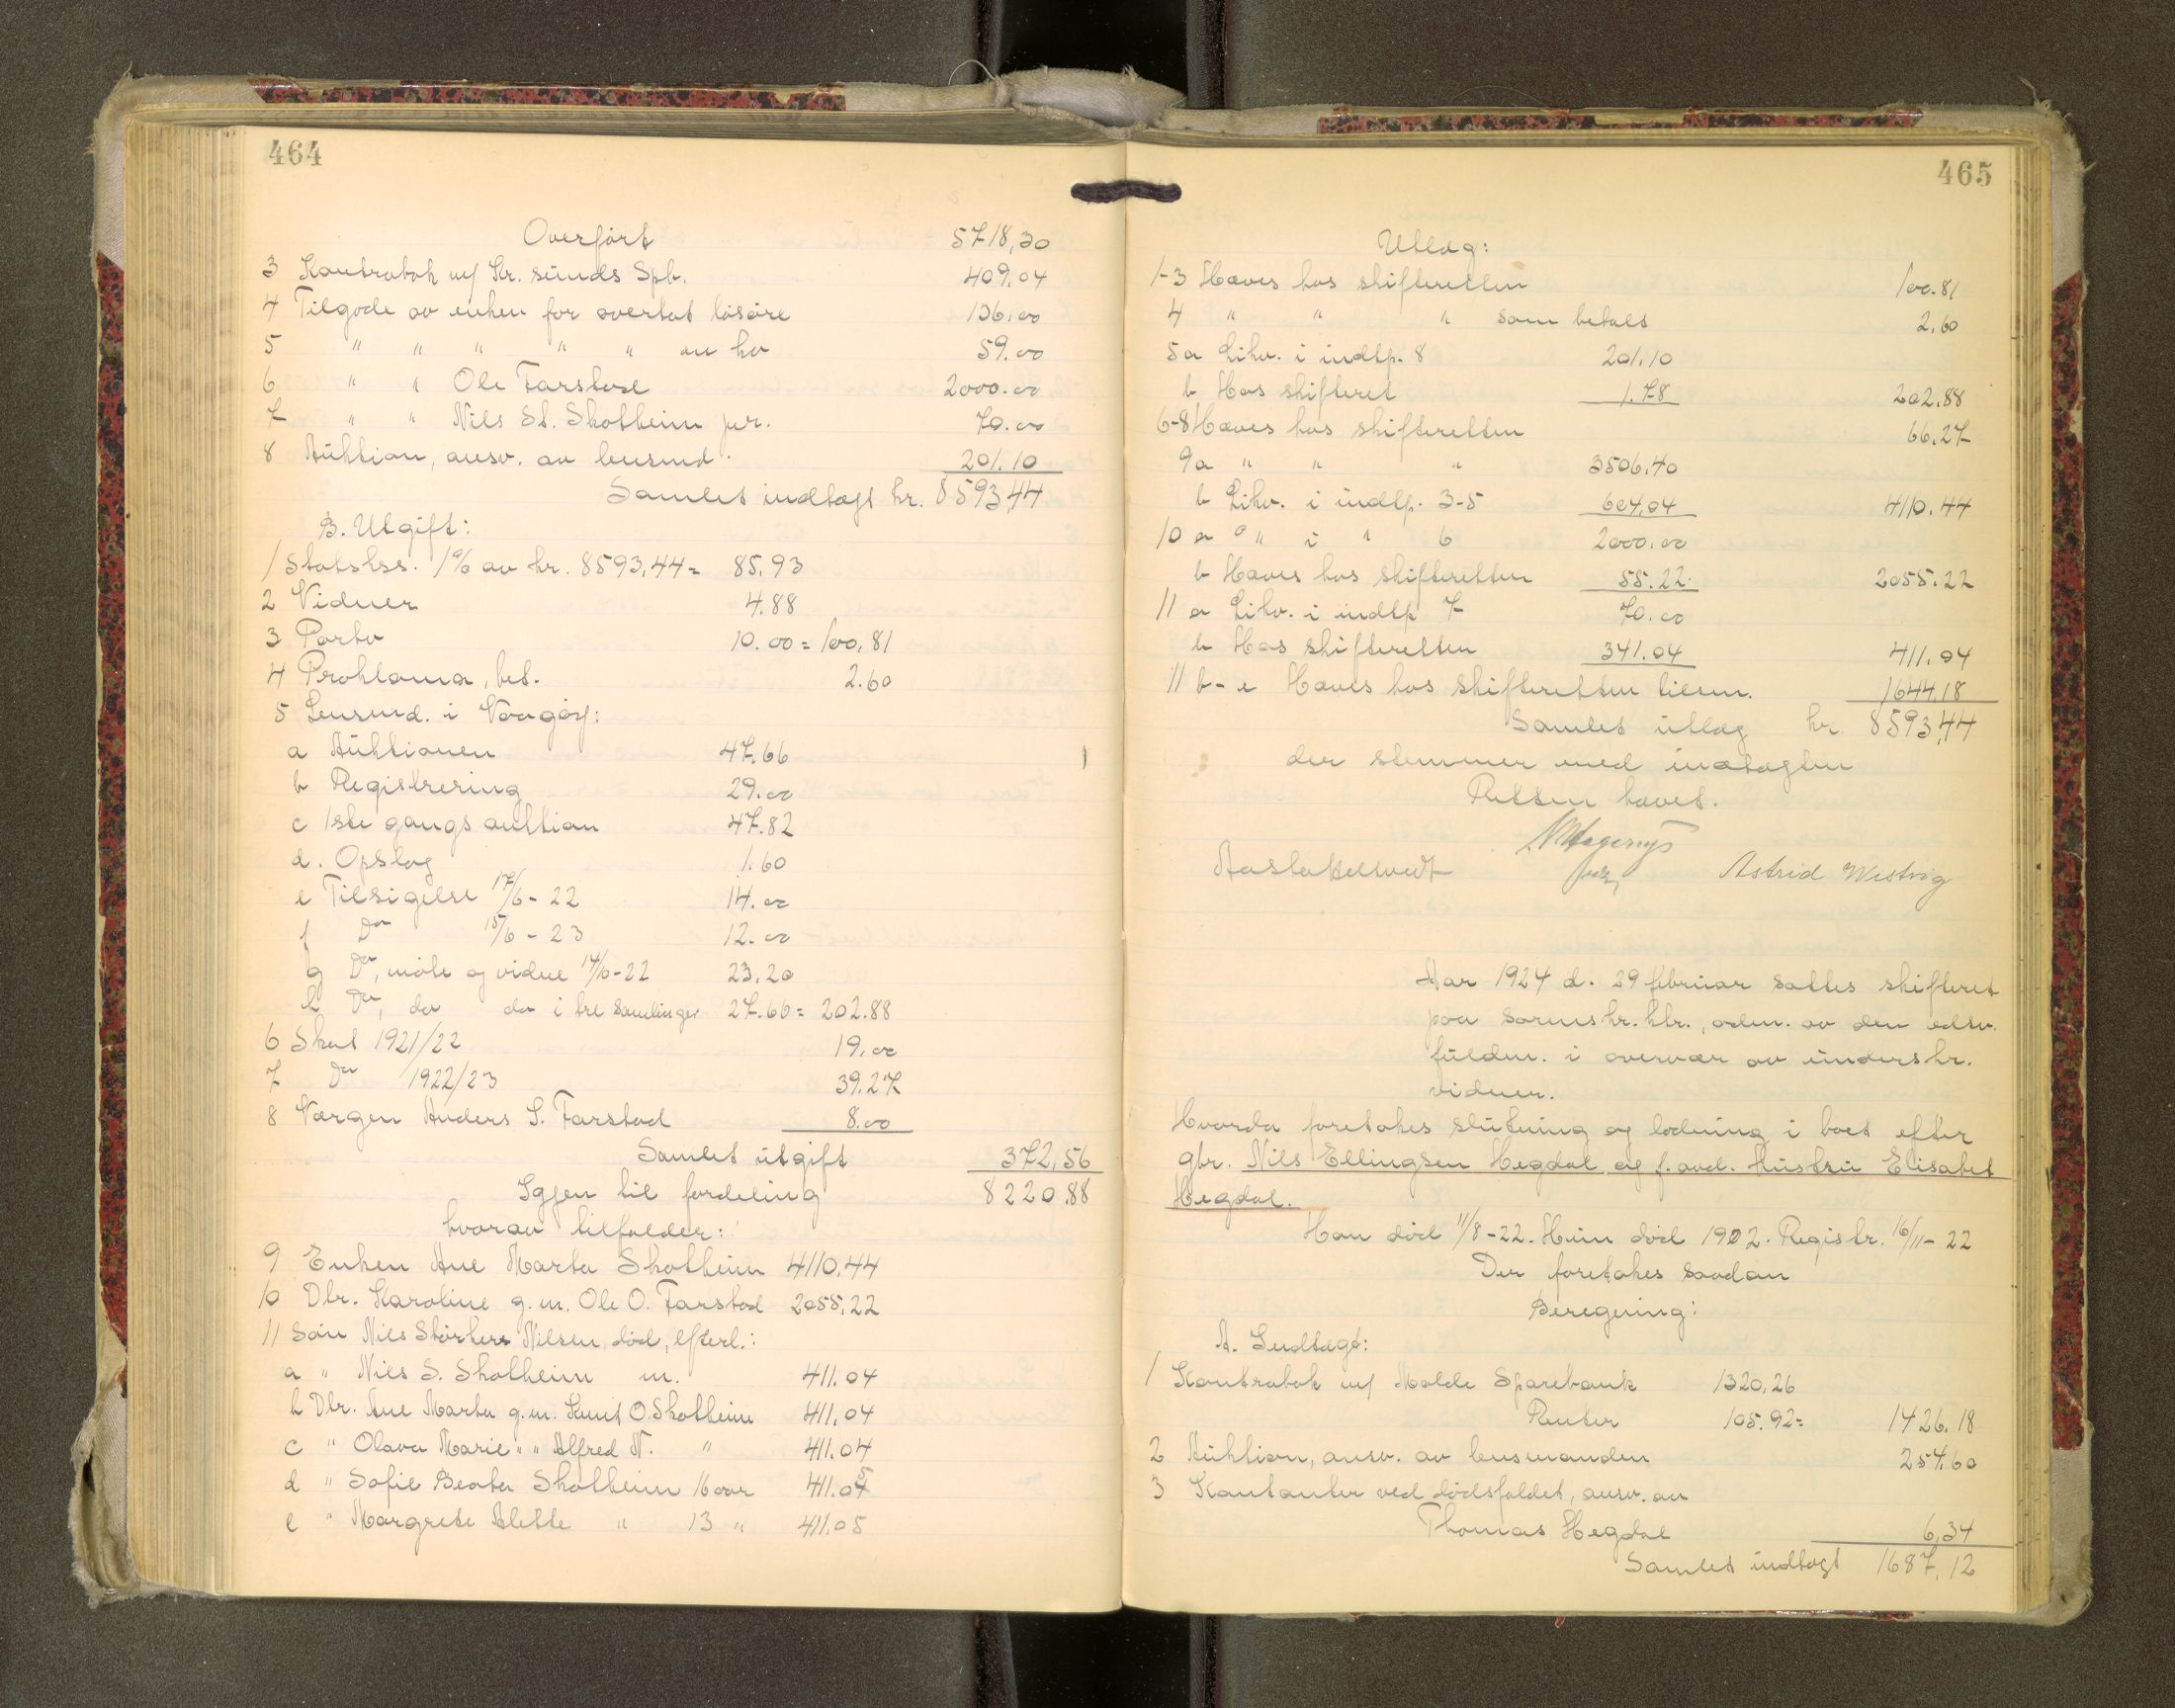 464
Overført 5718,30
3 Kontrabok m/ Kr.sunds Spb. 409.04
4 Tilgode av enken for overtat løsøre 136.00
5 " " " " " en ko 59.00
6 " " Ole Farstad 2000.00
7 " " Nils St. Skotheim jur. 70.00
8 Auktion, ansv. av lensmd. 201.10
Samlet indtægt kr. 8593,44
B. Utgift:
1 Statskss. 1% av kr. 8593,44 = 85.93
2 Vidner 4.88
3 Porto 10.00 = 100,81
4 Proklama, bet. 2.60
5 Lensmd. i Vaagøy:
a Auktionen 47.66
b Registrering 29.00
c 1ste gangs auktion 47.82
d. Opslag 1.60
e Tilsigelse 17/6 - 22 14.00
f Do 15/6 - 23 12.00
g Do, møte og vidne 14/6-22 23.20
h Do, do do i tre samlinger 27.60 = 202.88
6 Skat 1921/22 19.00
7 Do 1922/23 39.27
8 Værgen Anders S. Farstad 8.00
Samlet utgift 372,56
Igjen til fordeling 8220.88
hvorav tilfalder:
9 Enken Ane Marta Skotheim 4110.44
10 Dtr. Karoline g.m. Ole O. Farstad 2055,22
11 Søn Nils Størkers Nilsen, død, efterl.:
a " Nils S. Skotheim m. 411.04
b Dtr. Ane Marta g.m. Knut O. Skotheim 411.04
c " Olava Marie " " Alfred N. " 411.04
d " Sofie Beata Skotheim 16 aar 411.05
e " Margrete Alette " 13 " 411.05
465
Utlæg:
1-3 Haves hos skifteretten 100.81
4 " " " som betalt 2.60
5a Likv. i indtp. 8 201.10
b Hos skifteret 1.78 202.88
6-8 Haves hos skifteretten 66.27
9a " " " 3506.40
b Likv. i indtp. 3-5 604.04 4110.44
10 a " i " 6 2000.00
b Haves hos skifteretten 55.22 2055.22
11 a Likv. i indtp 7 70.00
b Hos skifteretten 341.04 411.04
11 b-e Haves hos skifteretten tilsm. 1644.18
Samlet utlæg kr. 8593,44
der stemmer med indtægten
Retten hævet.
Astrid Westvig
Aar 1924 d. 29 februar sattes skifteret
paa sornskr.ktr., adm. av den edsv.
fuldm. i overvær av underskr.
vidner.
Hvorda foretokes slutning og lodning i boet efter
gbr. Nils Ellingsen Hegdal og f.avd. hustru Elisabet
Hegdal.
Han død 11/8-22. Hun død 1902. Registr. 16/11-22
Der foretokes saadan
Beregning:
A. Indtægt:
1 Kontrabok m/ Molde Sparebank 1320,26
Renter 105.92 = 1426.18
2 Auktion, ansv. av lensmanden 254.60
3 Kontanter ved dødsfaldet, ansv. av
Thomas Hegdal 6,34
Samlet indtægt 1687,12